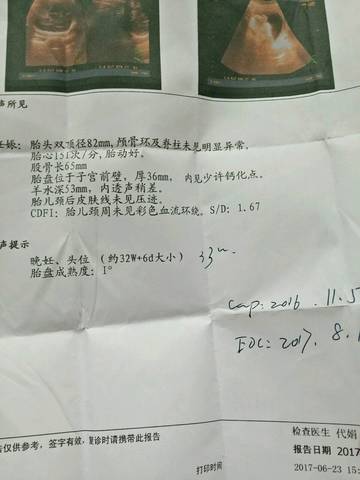 声所见
妊娠: 胎头双顶径82mm,颅骨环及脊柱未见明显异常。
胎心151次/分,胎动好。
股骨长65mm
胎盘位于子宫前壁,厚36mm, 内见少许钙化点。
羊水深53mm,内透声稍差。
胎儿颈后皮肤线未见压迹。
CDFI: 胎儿颈周未见彩色血流环绕。S/D: 1.67
声提示
晚妊、头位 (约32W+6d大小) 33w
胎盘成熟度: I°
2016 . 11.5
EDC: 2017. 8.1
检查医生 代娟
告仅供参考, 签字有效,复诊时请携带此报告
报告日期 2017
打印时间 2017-06-23 15: